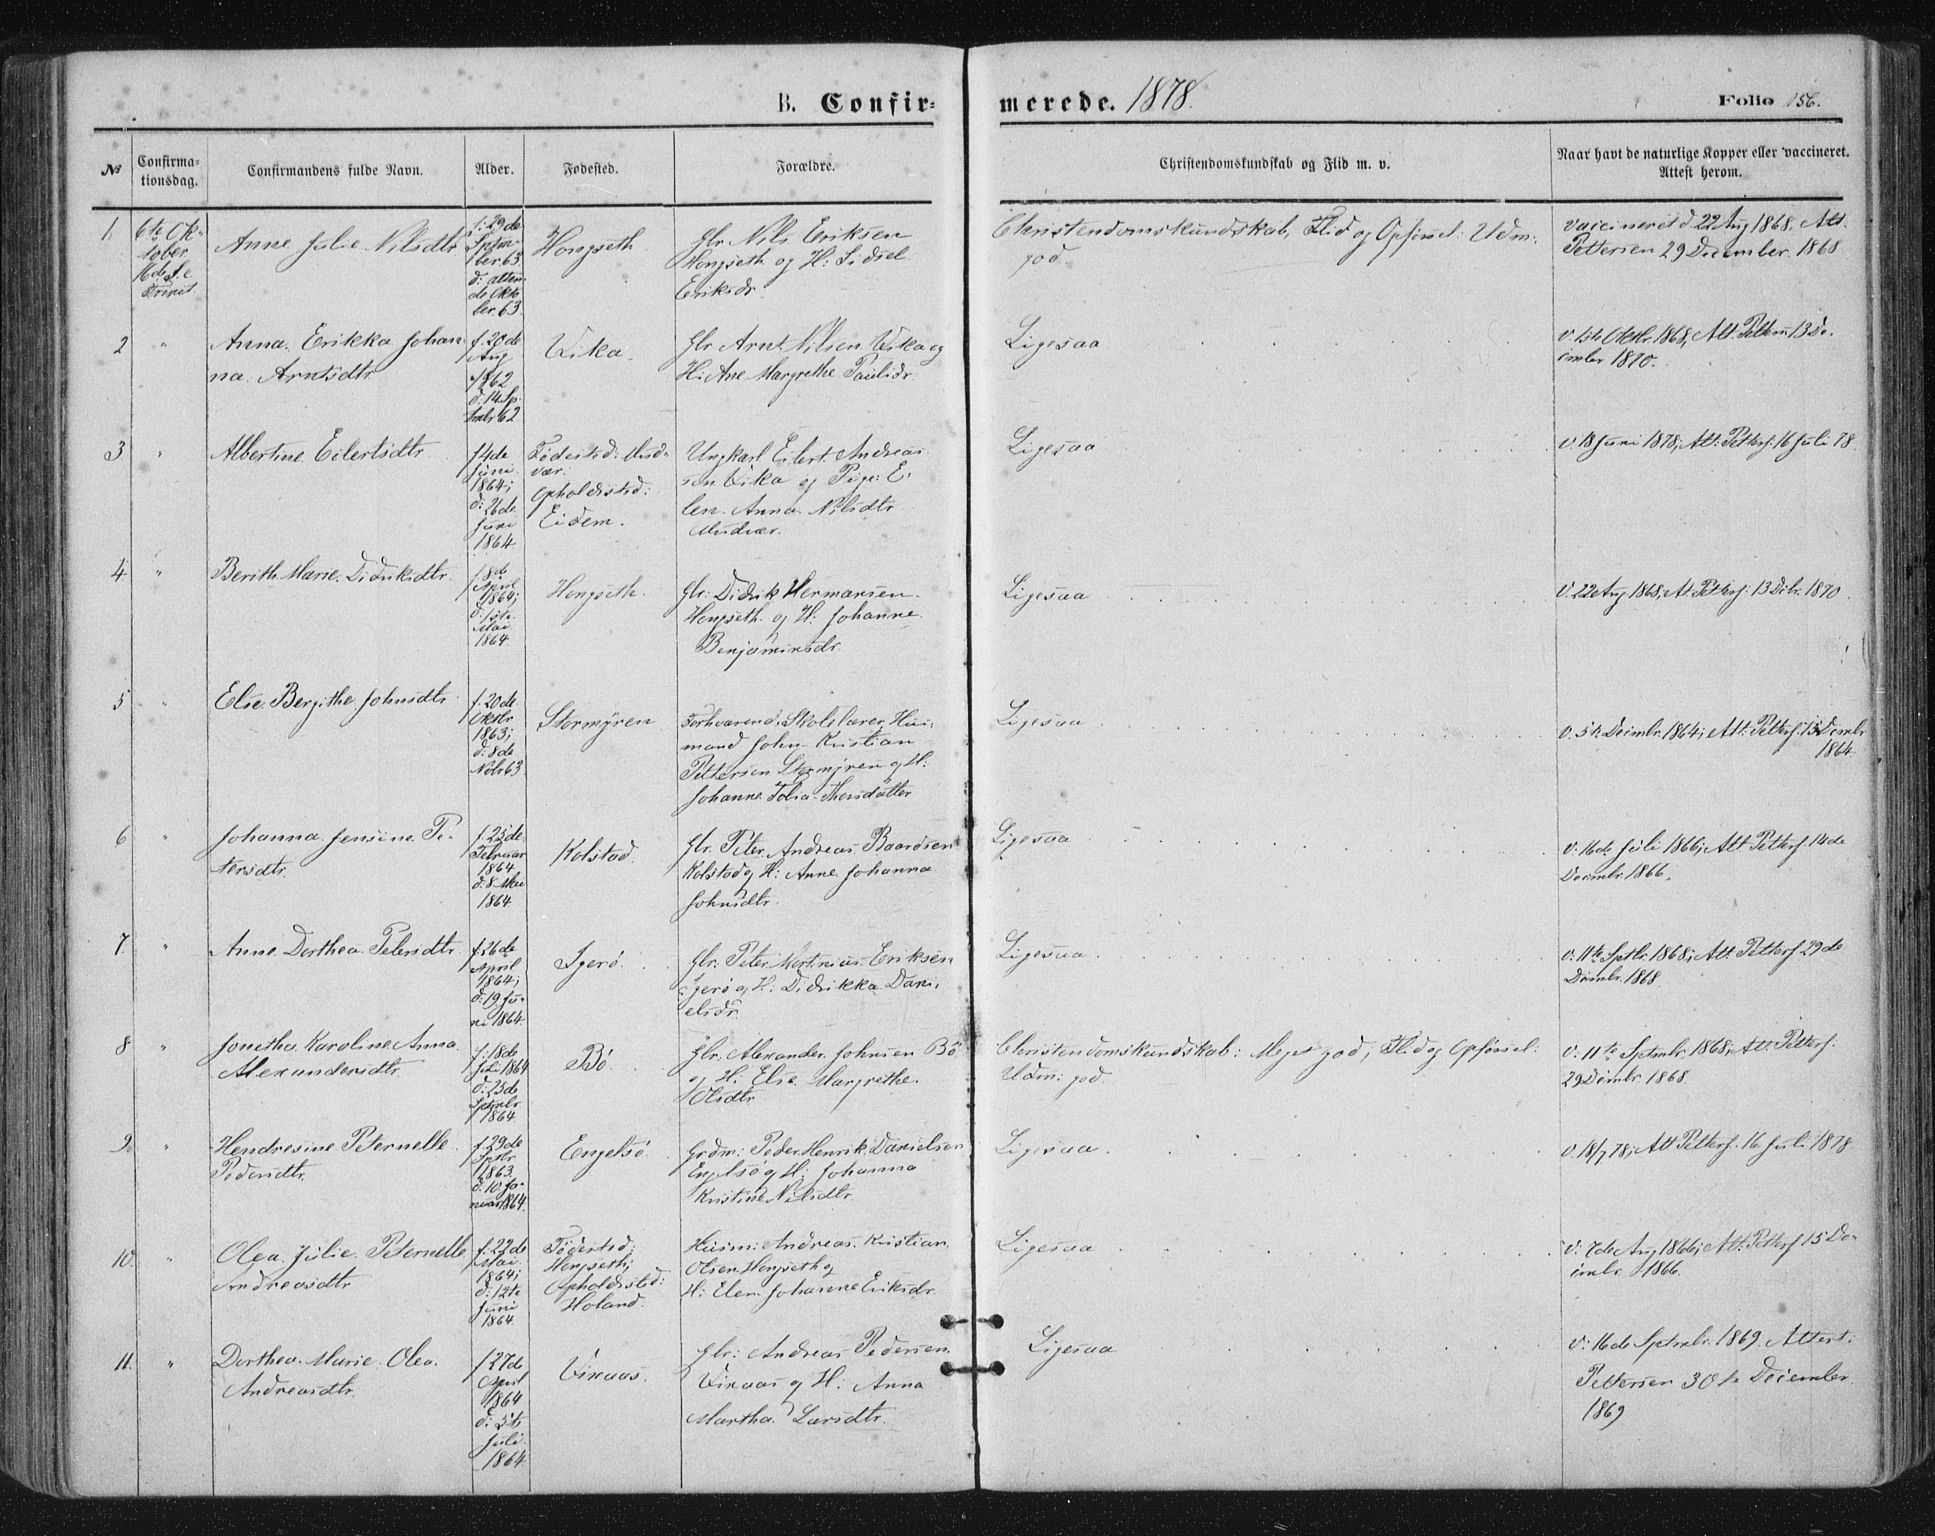 B. Confir=
merede. 1878.
Folio 156.
№
Confirma=
tionsdag.
Confirmandens fulde Navn.
Alder.
Fødested.
Forældre.
Christendomskundskab og Flid m. v.
Naar havt de naturlige Kopper eller vaccineret.
Attest herom.
1.
6te Ok-
tober
16de S. e
Trinit.
Anne Julie Nilsdtr
f: 29de
Septm-
ber 63
d: atten
de Okto
ber. 63
Hongseth
Gbr Nils Eriksen
Hongseth og H: Sidsel
Eriksdr.
Christendomskundskab, Flid og Opførsel: Udm:
god.
vaccineret d 22 Aug 1868, Att.
Pettersen 29 December. 1868
2
"
Anna. Erikka Johan
na. Arntsdtr
f. 20de
Aug
1862
d: 14 Sp
tmbr 62
Vika.
Gbr Arnt Nilsen Vika og
H: Ane Margrethe Paulsdr.
Ligesaa
v. 1ste Oktbr. 1868, Att. Petters 13 De-
cimbr 1870.
3.
"
Albertine Eilertsdtr
f 4de
Juni
1864;
d: 26de
Juni
1864
Fødested: Mud-
vær:
Opholdssted:
Eidem.
Ungkarl Eilert. Andreas
sen Vika og Pige: E-
len. Anna. Nilsdtr
Mudvær.
Ligesaa
v. 18 Juni 1878; Att: Petters. 16 Juli 78.
4.
"
Berith. Marie. Didriksdtr.
f. 8de
April
1864;
d: 1ste.
Mai
1864.
Hongseth.
Gbr: Didrik Hermansen.
Hongseth. og H: Johanne
Benjaminsdr.
Ligesaa
v. 22 Aug 1868; At. Petters: 13 Dcbr. 1870
5
"
Else. Bergithe Johnsdtr
f. 20de
Oktbr
1863;
d: 8de
Nobr 63
Stormyren
Forhværend. Skolelærer, Hus-
mand John Kristian
Pettersen Stormyren og H:
Johanne Tobia Thorsdatter
Ligesaa
v. 5te Decmbr. 1864; Att: Petters. 15 Decmbr
1864.
6
"
Johanna. Jensine. Pe-
tersdtr.
f. 25de
Februar
1864
d: 8 Mai
1864
Kolstad.
Gbr. Peter. Andreas. Baardsen
Kolstad og H: Anne Johanna
Johnsdtr.
Ligesaa
v: 16de Juli 1866; Att Petters. 14de
Decmbr. 1866.
7.
"
Anne. Dorthea. Petersdtr
f. 26de
April
1864;
d: 19 Ju-
ni 1864.
Igerø
Gbr: Peter Mortinius. Eriksen
Igerø og H: Didrikka Dani-
elsdr.
Ligesaa
v. 11te Septbr. 1868; Att: Petters 29de
Decmbr. 1868
8
"
Jonetha. Karoline Anna.
Alexandersdtr.
f: 18de
Juli 1864
d: 25de
Septmbr
1864
Bø.
Gbr. Alexander. Johnsen Bø
og H: Else. Margrethe.
Olsdtr.
Christendomskundskab: Meget god; Flid og Opførsel:
Udm: god.
v: 11te Septmbr. 1868; Att: Petters.
29 Decmbr. 1868.
9.
"
Hendresine Peternelle.
Pedersdtr.
f. 29de
Sptbr
1863
d: 10. Ja-
nuar 1864.
Engelsø.
Grdm: Peder Henrik. Danielsen
Engelsø og H: Johanna
Kristine Nilsdtr.
Ligesaa
v. 18/7 78; Att Petters. 16 Juli 1878
10.
"
Olea. Julie. Peternelle
Andreasdtr
f. 22de
Mai
1864;
d: 12te
Juni
1864
Fødested:
Hongseth;
Opholdssted:
Holand.
Husm: Andreas. Kristian.
Olsen Hongseth og
H: Elen. Johanne Eriksdr.
Ligesaa
v: 7de Aug 1866; Att: Petters 15 De-
cimbr. 1866.
11.
"
Dorthea. Marie. Olea.
Andreasdtr.
f 27de
April
1864
d: 3te
Juli
1864
Vikaas.
Gbr: Andreas Pedersen.
Vikaas og H: Anna
Martha. Larsdtr.
Ligesaa
v: 16de Sptmbr. 1869. Attest.
Pettersen 30te December
1869